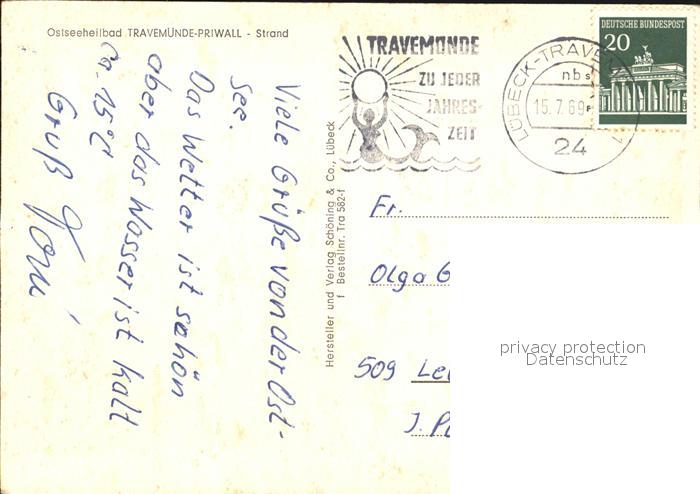 Ostseeheilbad TRAVEMÜNDE-PRIWALL - Strand
Viele Grüße von der Ost-
see.
Das Wetter ist schön
aber das Wasser ist kalt
ca. 15°C
Gruß
Hersteller und Verlag Schöning & Co., Lübeck
f Bestellnr. Tra 582-f
TRAVEMÜNDE
ZU JEDER
JAHRES-
ZEIT
LÜBECK-TRAVEM
nbs
15.7.69
24
DEUTSCHE BUNDESPOST
20
Fr.
Olga G
509 Le
J. P
privacy protection
Datenschutz